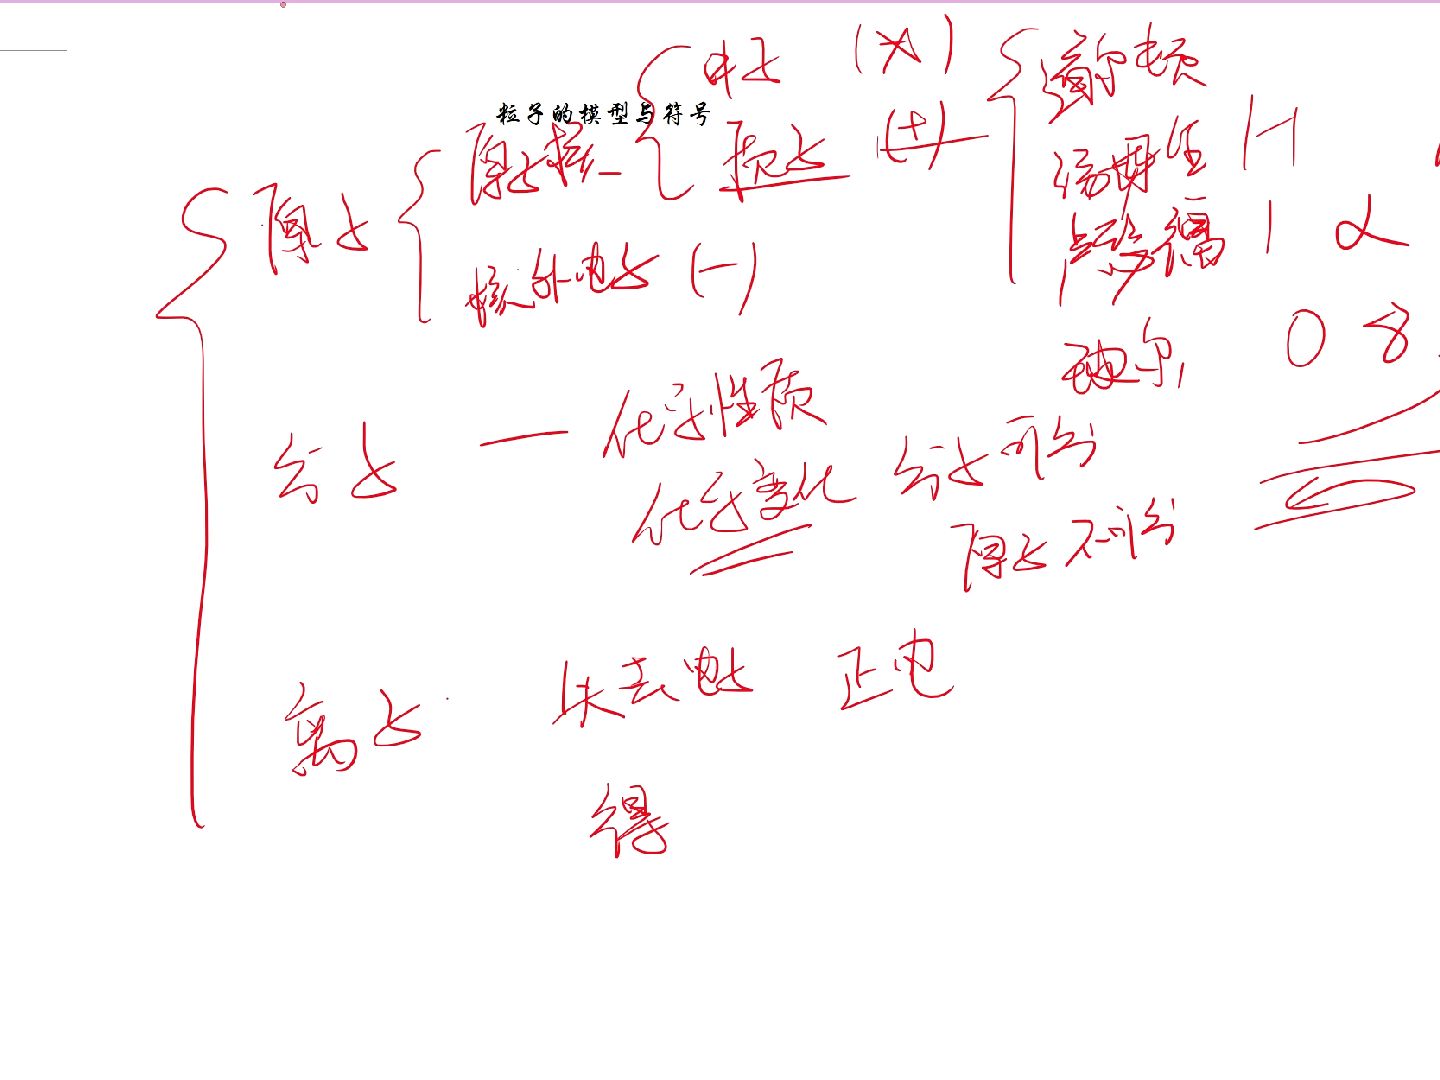 粒子的模型与符号
中子 (×)
质子 (+)
原子核
原子
核外电子 (-)
道尔顿
汤姆生
卢瑟福 1 α
玻尔
0 8
分子 — 化学性质
化学变化 分子可分
原子不可分
离子 失去电子 正电
得